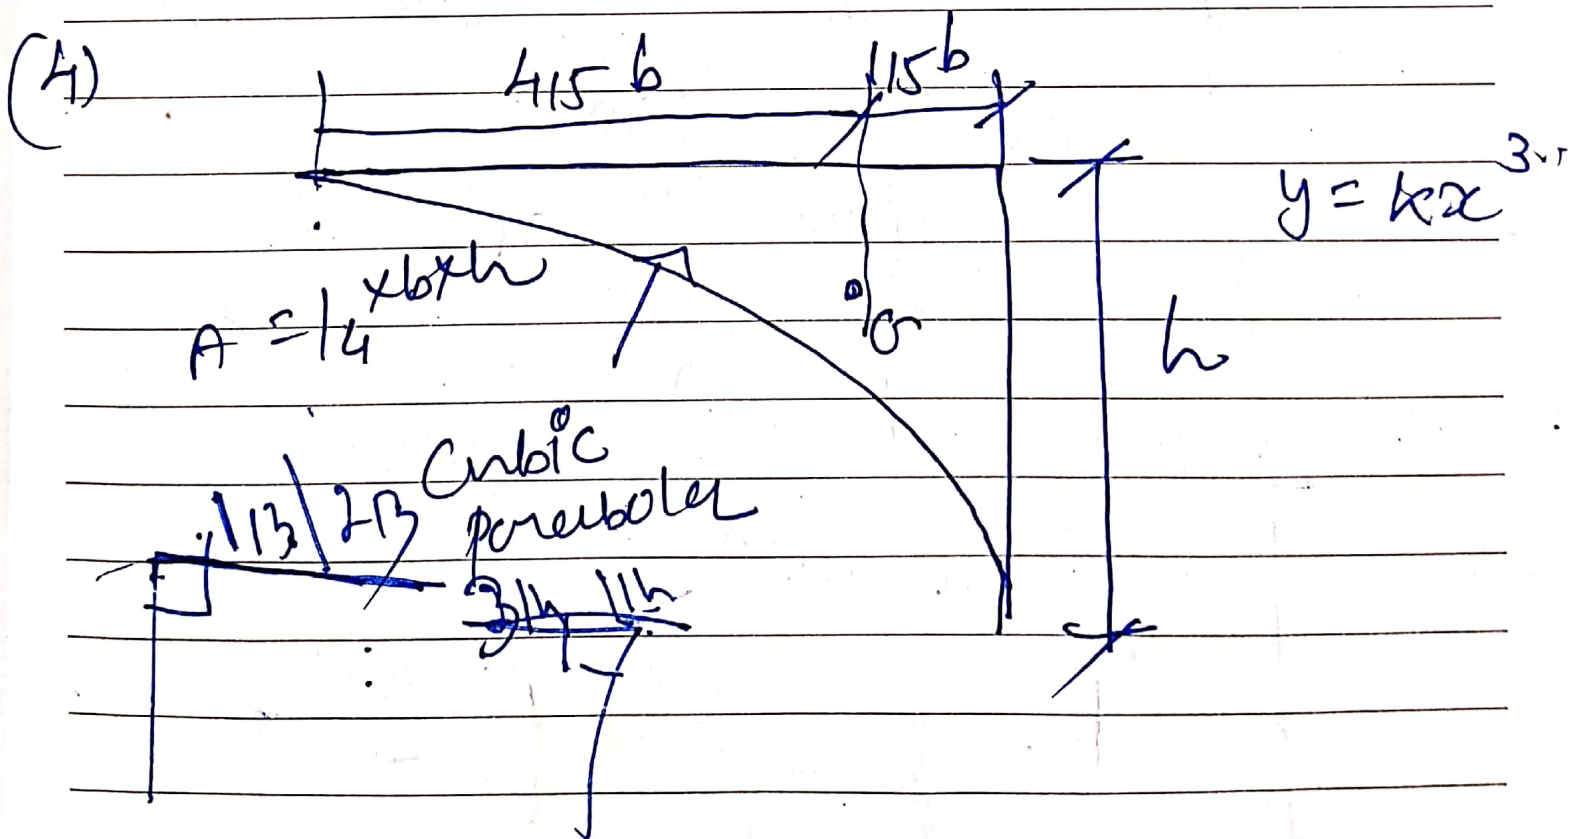 (4)
4/5 b 1/5 b
y = kx³
A = 1/4 × b × h
G
h
Cubic
parabola
1/3 2/3